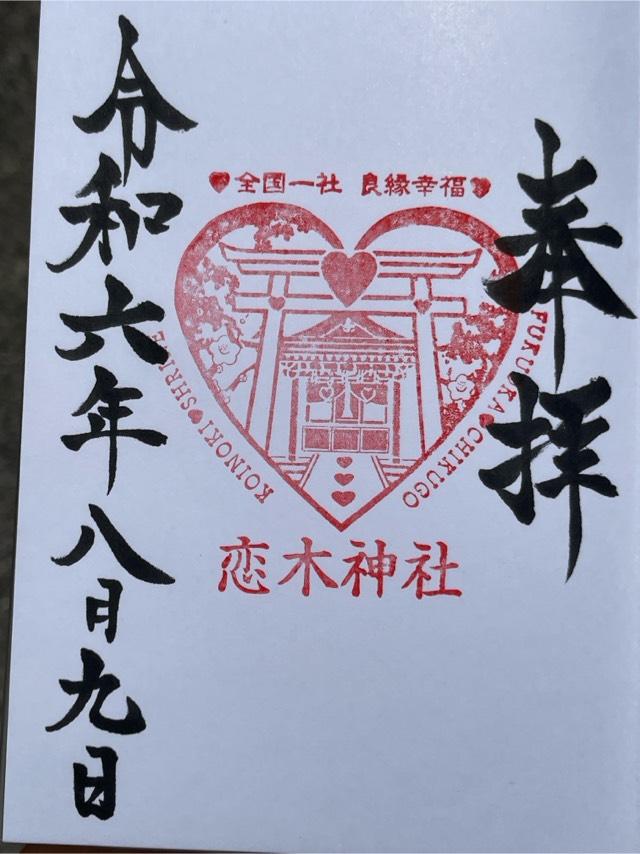 奉拝
♥全国一社 良縁幸福♥
KOINOKI♥SHRINE
FUKUOKA♥CHIKUGO
恋木神社
令和六年八月九日